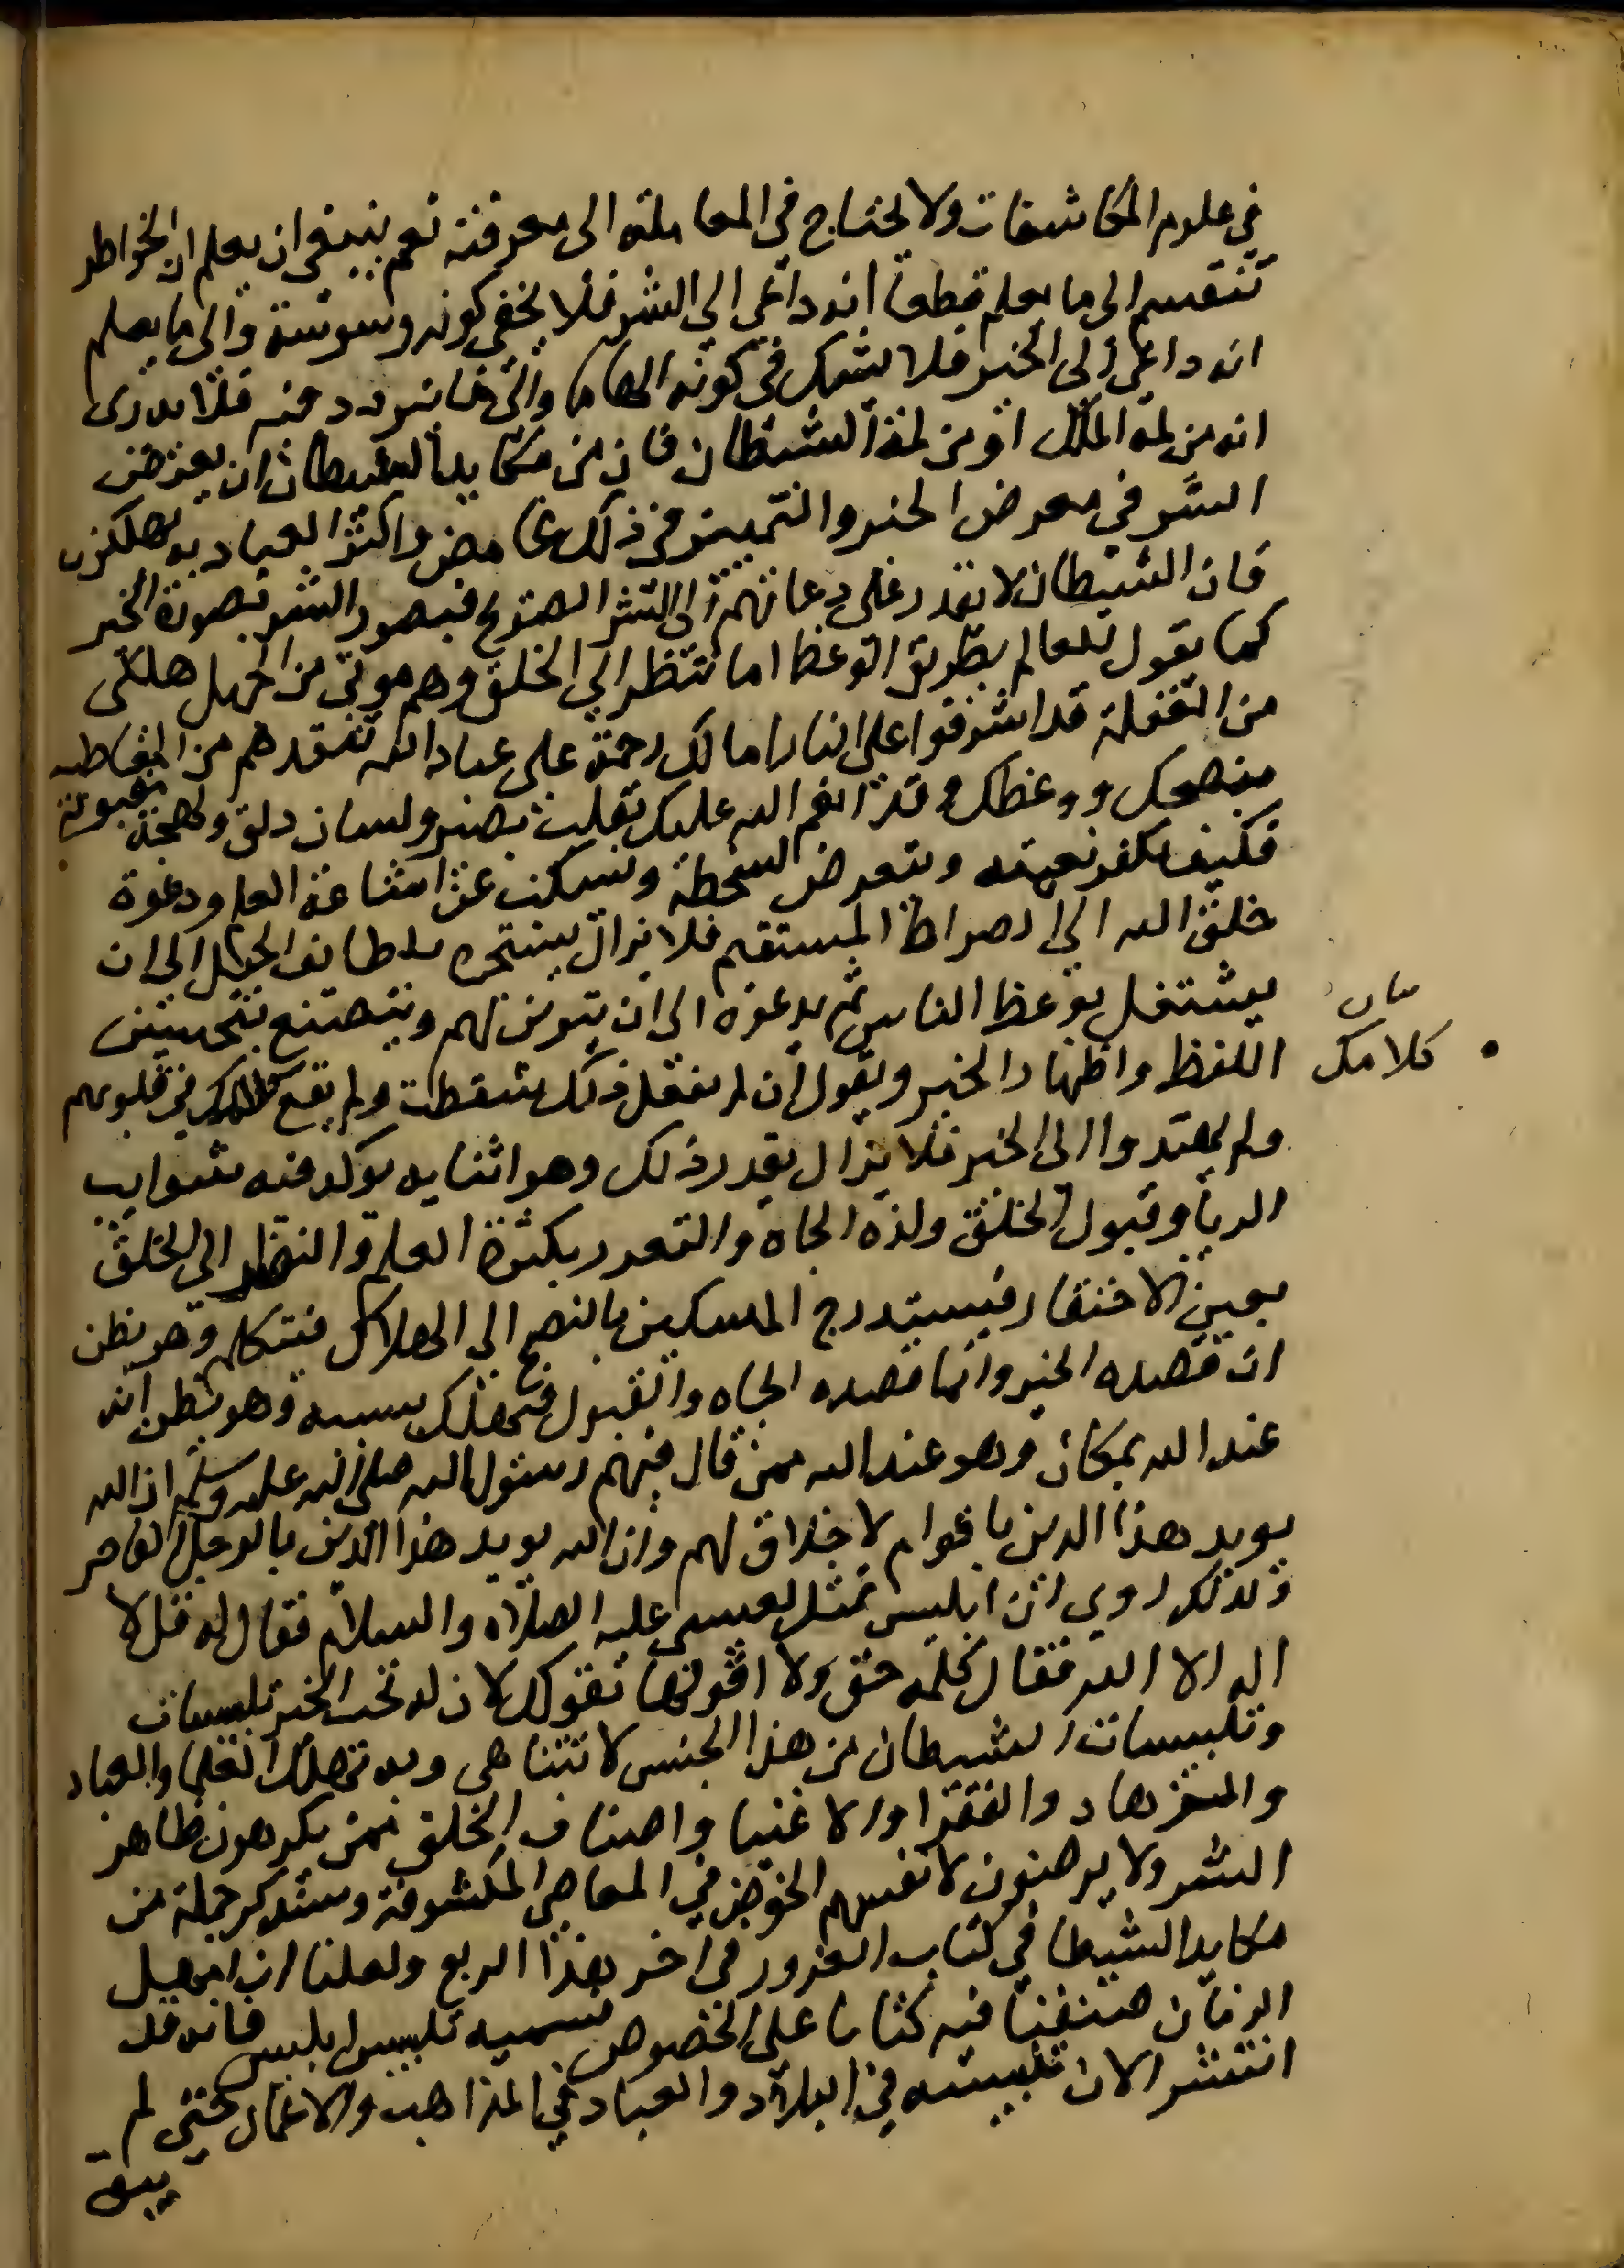 في علوم المكاشفات ولا يحتاج في المعاملة الى معرفته نعم ينبغي ان يعلم ان الخواطر
تنقسم الى ما يعلم قطعا انه داعي الى الشر فلا يخفى كونه وسوسة والى ما يعلم
انه داعي الى الخير فلا يشك في كونه الهاما والى ما يتردد فيه فلا يدرى
انه من لمة الملك او من لمة الشيطان فان من مكايد الشيطان ان يعرض
الشر في معرض الخير والتمييز في ذلك غامض واكثر العباد به يهلكون
فان الشيطان لا يقدر على دعائهم الى الشر الصريح فيصور الشر بصورة الخير
كما يقول للعالم بطريق الوعظ اما تنظر الى الخلق وهم موتى من الجهل هلكى
من الغفلة قد اشرفوا على النار اما لك رحمة على عباد الله تنقذهم من المعاطب
بنصحك ووعظك وقد انعم الله عليك بقلب بصير ولسان دلق ولهجة مقبولة
فكيف تكفر نعمته وتتعرض لسخطه وتسكت عن اشاعة العلم ودعوة
خلق الله الى الصراط المستقيم فلا يزال يستجره بلطايف الحيل الى ان
يشتغل بوعظ الناس ثم يدعوه الى ان يتزين لهم ويتصنع بتحسين
اللفظ واظهار الخير ويقول ان لم تفعل ذلك سقطت ولم يقع كلامك في قلوبهم
كلامك
ولم يهتدوا الى الخير فلا يزال يقدر ذلك وهو اثنايه يوكد فيه شوايب
الريا وقبول الخلق ولذة الجاه والتعزز بكثرة العلم والنظر الى الخلق
بعين الاحتقار فيستدرج المسكين بالنصح الى الهلاك فيتكلم وهو يظن
ان قصده الخير وانما قصده الجاه والقبول فيهلك بسببه وهو يظن انه
عند الله بمكان وهو عند الله ممن قال فيهم رسول الله صلى الله عليه وسلم ان الله
يويد هذا الدين باقوام لا خلاق لهم وان الله يويد هذا الدين بالرجل الفاجر
ولذلك روي ان ابليس تمثل لعيسى عليه الصلاة والسلام فقال له قل لا
اله الا الله فقال كلمة حق ولا اقولها بقولك لان له تحت الخير تلبيسات
وتلبيسات الشيطان من هذا الجنس لا تتناهى وبه تهلك العلما والعباد
والمتزهاد والفقرا والاغنيا واصناف الخلق ممن يكرهون ظاهر
الشر ولا يرضون لانفسهم الخوض في المعاصي المكشوفة وستذكر جملة من
مكايد الشيطان في كتاب الغرور في اخر هذا الربع ولعلنا ان امهل
الزمان صنفنا فيه كتابا على الخصوص نسميه تلبيس ابليس فانه قد
انتشر الان تلبيسه في البلاد والعباد في المذاهب والاعمال حتى لم
يبق